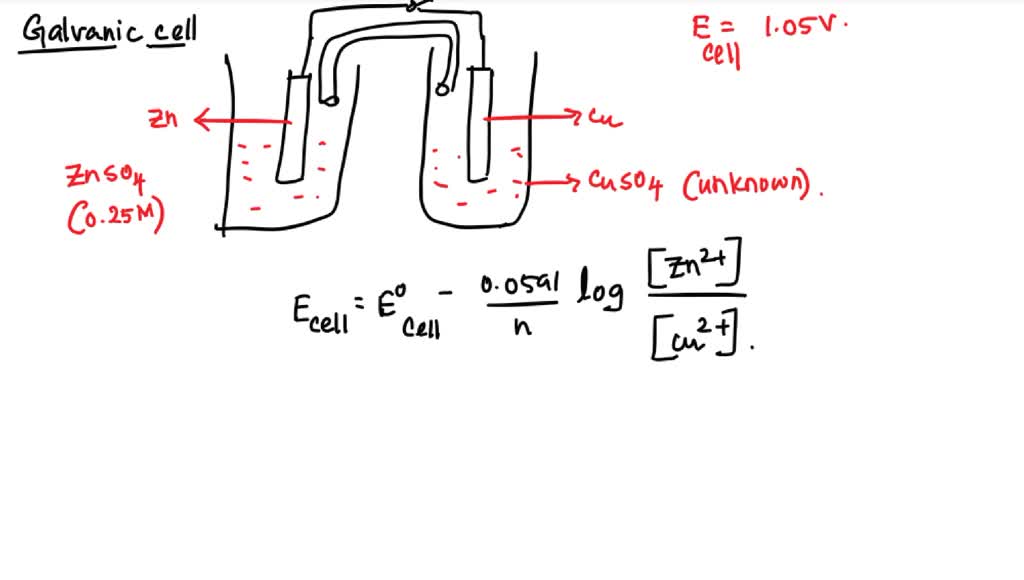 Galvanic cell
E = 1.05V.
cell
Zn
Cu
ZnSO4
(0.25M)
CuSO4 (unknown).
Ecell = E⁰cell - 0.0591/n log [Zn²⁺]/[Cu²⁺].